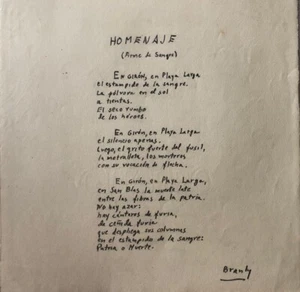 HOMENAJE
(Arma de Sangre)
En Girón, en Playa Larga
el estampido de la sangre.
La pólvora en el sol
a tientas.
El seco rumbo
de los héroes.
En Girón, en Playa Larga
el silencio apenas.
Luego, el grito fuerte del fusil,
la metralleta, los morteros
con su vocación de flecha.
En Girón, en Playa Larga,
en San Blas la muerte late
entre las fibras de la patria.
No hay azar:
hay cántaros de furia,
de ceñida furia
que despliega sus columnas
en el estampido de la sangre:
Patria o Muerte.
Branly